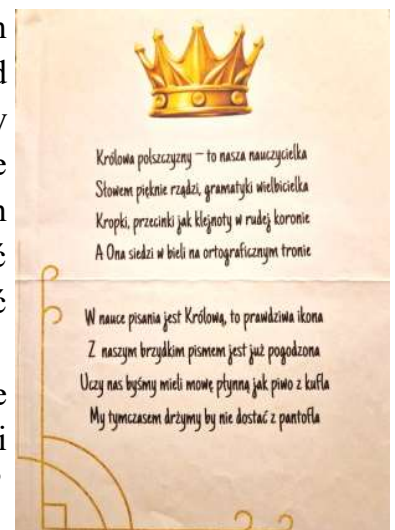 Królowa polszczyzny – to nasza nauczycielka
Słowem pięknie rządzi, gramatyki wielbicielka
Kropki, przecinki jak klejnoty w rudej koronie
A Ona siedzi w bieli na ortograficznym tronie
W nauce pisania jest Królową, to prawdziwa ikona
Z naszym brzydkim pismem jest już pogodzona
Uczy nas byśmy mieli mowę płynną jak piwo z kufla
My tymczasem drżymy by nie dostać z pantofla